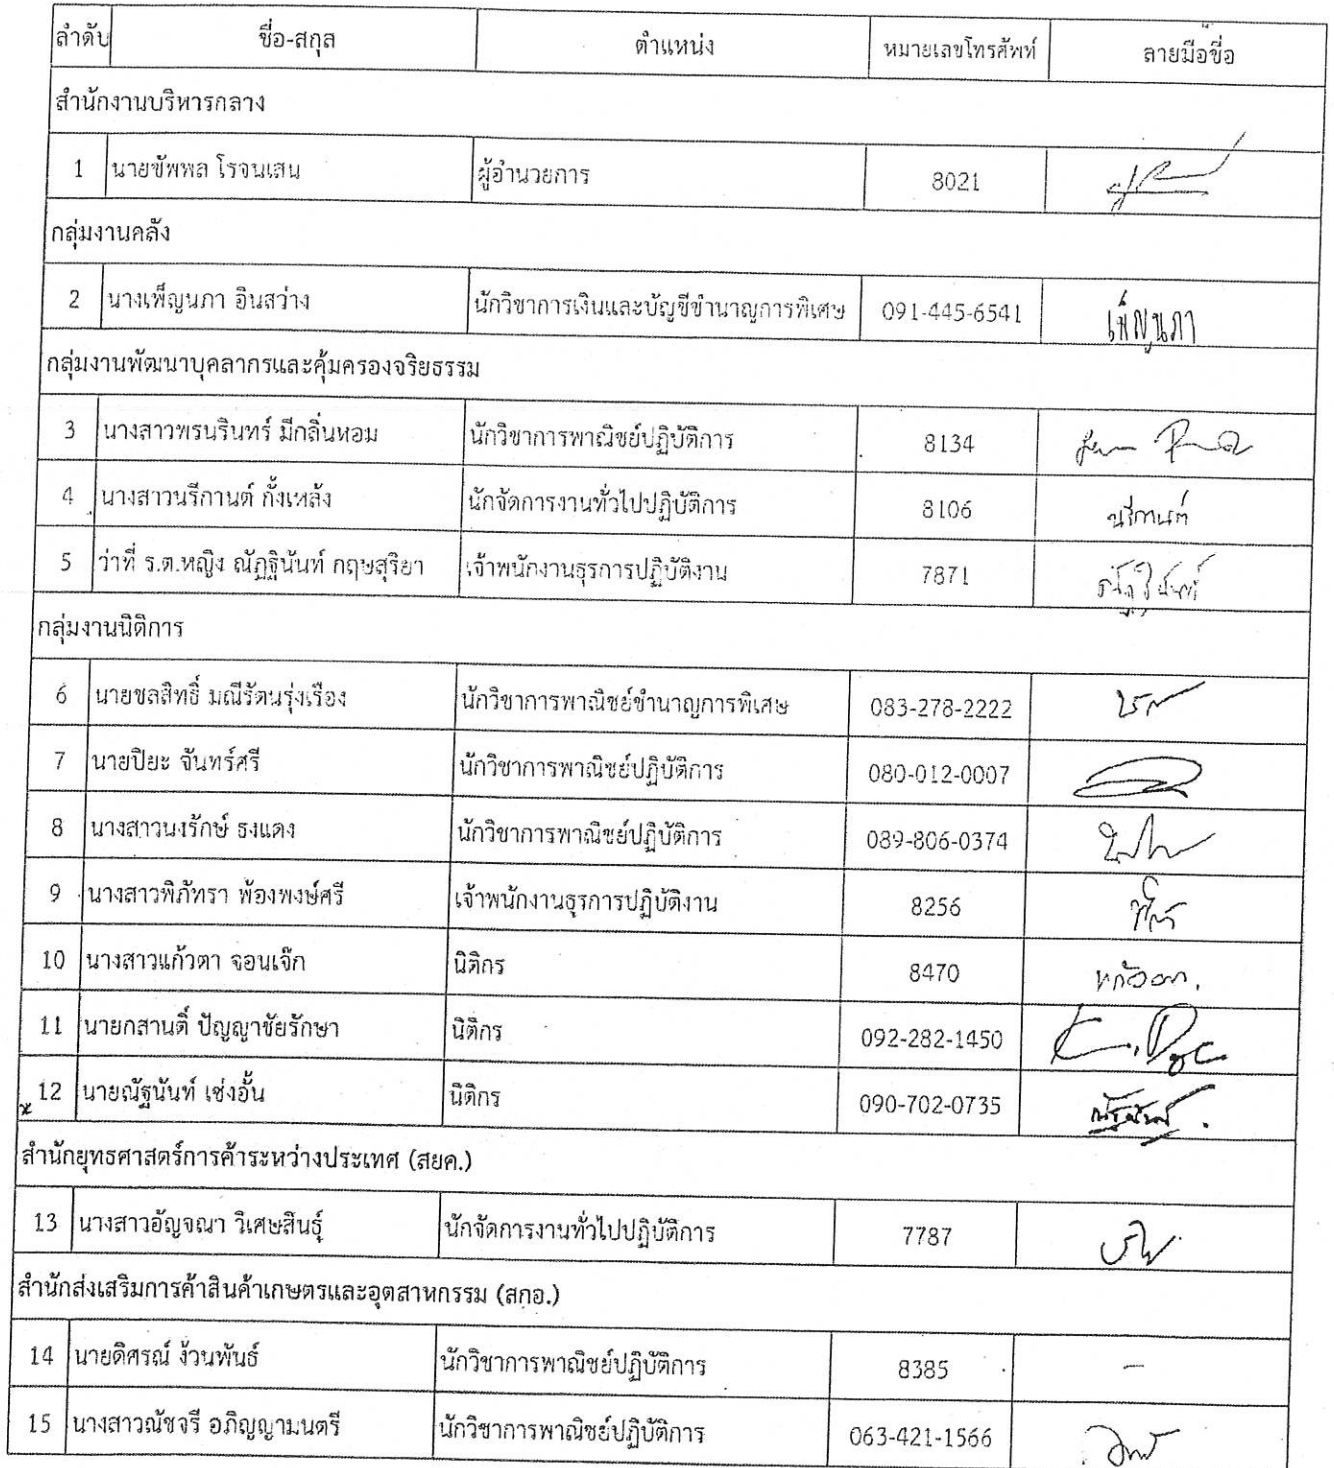 ลำดับ ชื่อ-สกุล ตำแหน่ง หมายเลขโทรศัพท์ ลายมือชื่อ
สำนักงานบริหารกลาง
1 นายขัพพล โรจนเสน ผู้อำนวยการ 8021
กลุ่มงานคลัง
2 นางเพ็ญนภา อินสว่าง นักวิชาการเงินและบัญชีชำนาญการพิเศษ 091-445-6541 เพ็ญนภา
กลุ่มงานพัฒนาบุคลากรและคุ้มครองจริยธรรม
3 นางสาวพรนรินทร์ มีกลิ่นหอม นักวิชาการพาณิชย์ปฏิบัติการ 8134
4 นางสาวนรีกานต์ กั้งเหล้ง นักจัดการงานทั่วไปปฏิบัติการ 8106 นรีกานต์
5 ว่าที่ ร.ต.หญิง ณัฏฐินันท์ กฤษสุริยา เจ้าพนักงานธุรการปฏิบัติงาน 7871 ณัฏฐินันท์
กลุ่มงานนิติการ
6 นายชลสิทธิ์ มณีรัตนรุ่งเรือง นักวิชาการพาณิชย์ชำนาญการพิเศษ 083-278-2222
7 นายปิยะ จันทร์ศรี นักวิชาการพาณิชย์ปฏิบัติการ 080-012-0007
8 นางสาวนงรักษ์ ธงแดง นักวิชาการพาณิชย์ปฏิบัติการ 089-806-0374
9 นางสาวพิภัทรา พ้องพงษ์ศรี เจ้าพนักงานธุรการปฏิบัติงาน 8256
10 นางสาวแก้วตา จอนเจ๊ก นิติกร 8470 แก้วตา
11 นายกสานติ์ ปัญญาชัยรักษา นิติกร 092-282-1450
12 นายณัฐนันท์ เช่งอั้น นิติกร 090-702-0735
สำนักยุทธศาสตร์การค้าระหว่างประเทศ (สยค.)
13 นางสาวอัญจณา วิเศษสินธุ์ นักจัดการงานทั่วไปปฏิบัติการ 7787
สำนักส่งเสริมการค้าสินค้าเกษตรและอุตสาหกรรม (สกอ.)
14 นายดิศรณ์ ง้วนพันธ์ นักวิชาการพาณิชย์ปฏิบัติการ 8385 -
15 นางสาวณัชจรี อภิญญามนตรี นักวิชาการพาณิชย์ปฏิบัติการ 063-421-1566